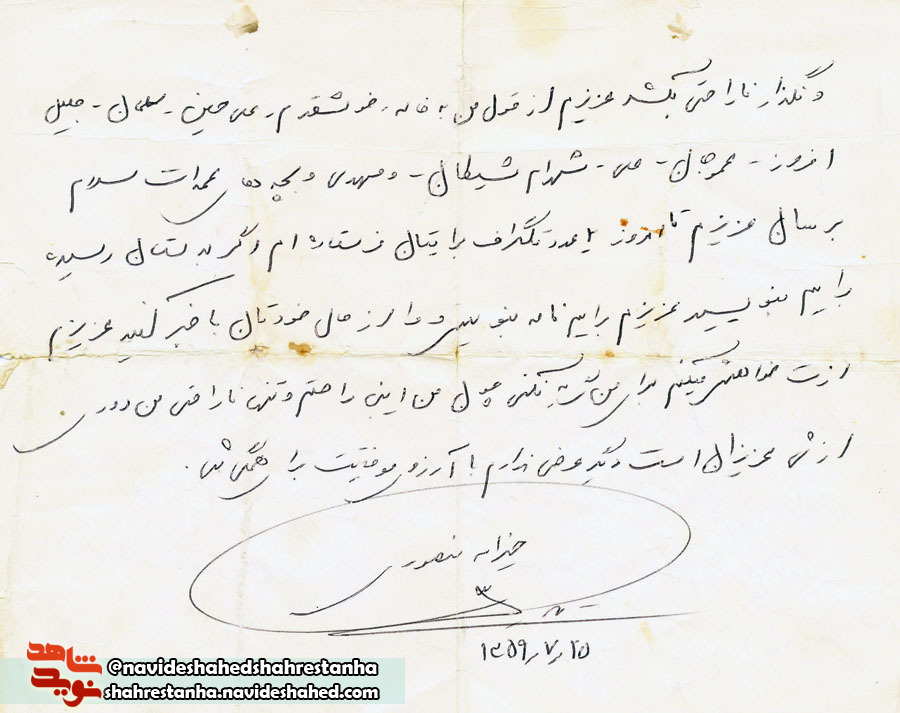 و نگذار ناراحتی بکشد عزیزم از قول من به خاله - خوشقدم - علی حسین - سلمان - جلیل
افروز - عموجان - علی - شهرام شیطان - و مهدی و بچه های عمه ات سلام
برسان عزیزم تا امروز عدد تلگراف برایتان فرستاده ام اگر بدستتان رسیده
برایم بنویسید عزیزم برایم نامه بنویس و مرا از حال خودتان با خبر کنید عزیزم
ازت خواهش میکنم برای من گریه نکنی چون من اینجا راحتم و تنها ناراحتی من دوری
از شما عزیزان است دیگر عرضی ندارم با آرزوی موفقیت برای همگی شما.
منصوری
۱۳۵۹٫۷٫۲۵
شاهد
نوید
@navideshahedshahrestanha
shahrestanha.navideshahed.com